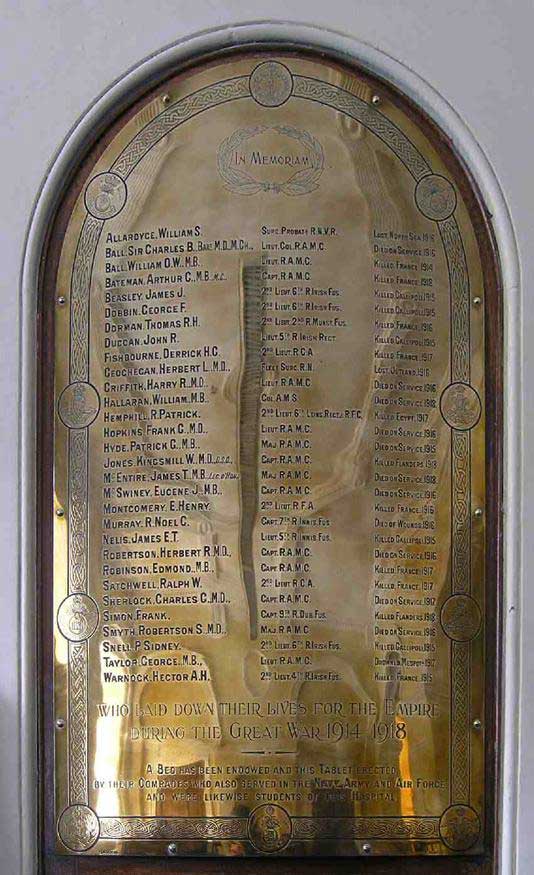 IN MEMORIAM
ALLARDYCE, WILLIAM S. SURG. PROBATR R.N.V.R. LOST NORTH SEA 1916
BALL, SIR CHARLES B. BART M.D., M.CH., LIEUT. COL. R.A.M.C. DIED ON SERVICE 1916
BALL, WILLIAM O.W., M.B. LIEUT. R.A.M.C. KILLED, FRANCE 1914
BATEMAN, ARTHUR C., M.B., M.C. CAPT. R.A.M.C. KILLED, FRANCE 1918
BEASLEY, JAMES J. 2ND LIEUT. 6TH R. IRISH FUS. KILLED, GALLIPOLI, 1915
DOBBIN, GEORGE F. 2ND LIEUT. 6TH R. IRISH FUS. KILLED, GALLIPOLI, 1915
DORMAN, THOMAS R.H. 2ND LIEUT. 2ND R. MUNST. FUS. KILLED, FRANCE, 1916
DUGGAN, JOHN R. LIEUT. 5TH R. IRISH REGT. KILLED, GALLIPOLI, 1915
FISHBOURNE, DERRICK H.C. 2ND LIEUT. R.G.A. KILLED, FRANCE, 1917
GEOGHEGAN, HERBERT L., M.D., FLEET SURG. R.N. LOST, JUTLAND, 1916
GRIFFITH, HARRY R., M.D., LIEUT. R.A.M.C. DIED ON SERVICE, 1916
HALLARAN, WILLIAM, M.B., COL. A.M.S. DIED ON SERVICE, 1918
HEMPHILL, R. PATRICK. 2ND LIEUT. 6TH LOND. REGT. & R.F.C. KILLED, EGYPT, 1917
HOPKINS, FRANK G., M.D., LIEUT. R.A.M.C. DIED ON SERVICE, 1916
HYDE, PATRICK G., M.B., MAJ. R.A.M.C. DIED ON SERVICE, 1915
JONES, KINGSMILL W., M.D., D.S.O., CAPT. R.A.M.C. KILLED, FLANDERS, 1918
MCENTIRE, JAMES T., M.B., MAJ. R.A.M.C. DIED ON SERVICE, 1918
MCSWINEY, EUGENE J., M.B., CAPT. R.A.M.C. DIED ON SERVICE, 1916
MONTGOMERY, E. HENRY. 2ND LIEUT. R.F.A. KILLED, FRANCE, 1916
MURRAY, R. NOEL C. CAPT. 7TH R. INNIS. FUS. DIED OF WOUNDS, 1916
NELIS, JAMES E.T. LIEUT. 5TH R. INNIS. FUS. KILLED, GALLIPOLI, 1915
ROBERTSON, HERBERT R., M.D., CAPT. R.A.M.C. DIED ON SERVICE, 1916
ROBINSON, EDMOND, M.B., CAPT. R.A.M.C. KILLED, FRANCE, 1917
SATCHWELL, RALPH W. 2ND LIEUT. R.G.A. KILLED, FRANCE, 1917
SHERLOCK, CHARLES G., M.D., CAPT. R.A.M.C. DIED ON SERVICE, 1917
SIMON, FRANK. CAPT. 9TH R. DUB. FUS. KILLED, FLANDERS, 1918
SMYTH, ROBERTSON S., M.D., MAJ. R.A.M.C. DIED ON SERVICE, 1916
SNELL, P. SIDNEY. 2ND LIEUT. 6TH R. IRISH FUS. KILLED, GALLIPOLI, 1915
TAYLOR, GEORGE, M.B., LIEUT. R.A.M.C. DROWND. MESPOTA. 1917
WARNOCK, HECTOR A.H. 2ND LIEUT. 4TH R. IRISH FUS. KILLED, FRANCE, 1915
WHO LAID DOWN THEIR LIVES FOR THE EMPIRE
DURING THE GREAT WAR 1914 1918
A BED HAS BEEN ENDOWED AND THIS TABLET ERECTED
BY THEIR COMRADES WHO ALSO SERVED IN THE NAVY, ARMY AND AIR FORCE
AND WERE LIKEWISE STUDENTS OF THIS HOSPITAL